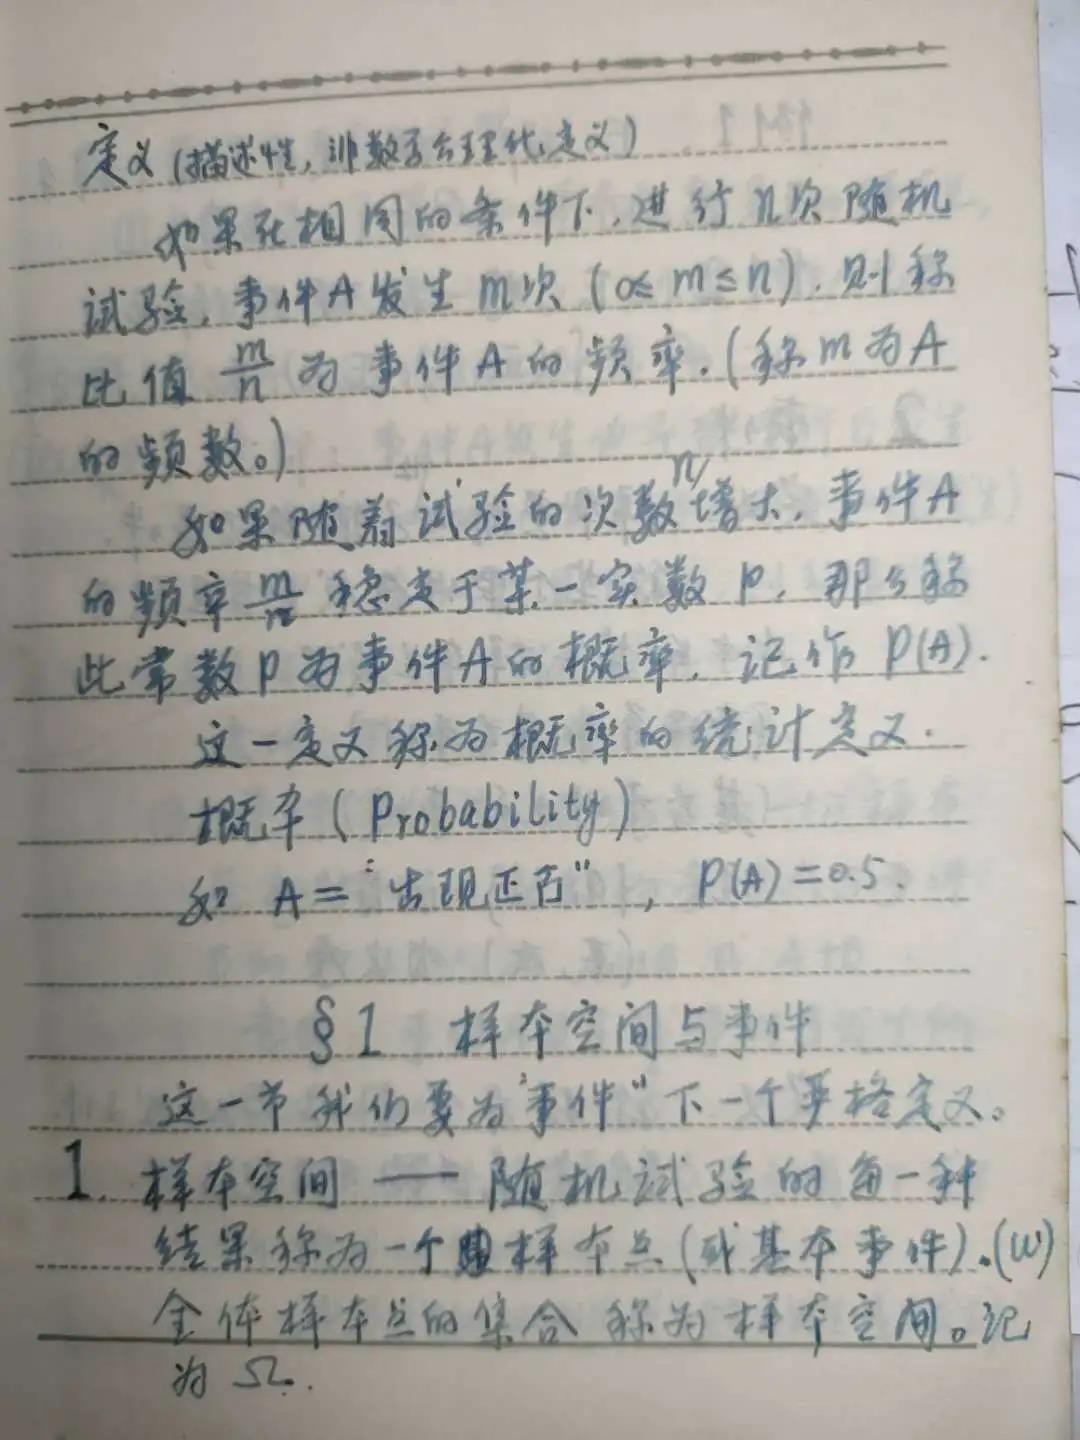 定义(描述性,非数学公理化定义)
如果在相同的条件下,进行n次随机
试验,事件A发生m次(0≤m≤n),则称
比值 m/n 为事件A的频率.(称m为A
的频数。)
如果随着试验的次数n增大,事件A
的频率 m/n 稳定于某一实数p,那么称
此常数p为事件A的概率,记作P(A).
这一定义称为概率的统计定义.
概率(Probability)
如 A="出现正面",P(A)=0.5.
§1 样本空间与事件
这一节我们要为"事件"下一个严格定义。
1. 样本空间——随机试验的每一种
结果称为一个样本点(或基本事件).(ω)
全体样本点的集合称为样本空间。记
为Ω.